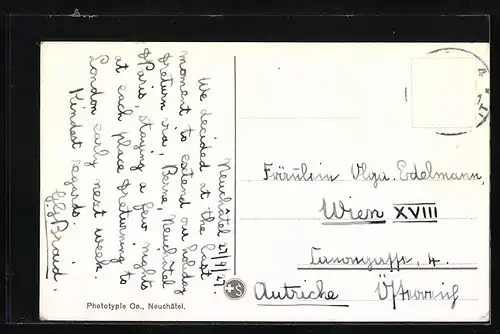 Neuchâtel 27/9/27.
We decided at the last
moment to extend our holiday
& return via, Berne, Neuchâtel
& Paris, staying a few nights
at each place & returning to
London early next week.
Kindest regards.
Fräulein Olga Edelmann,
Wien XVIII
4.
Autriche Österreich
Phototypie Co., Neuchâtel.